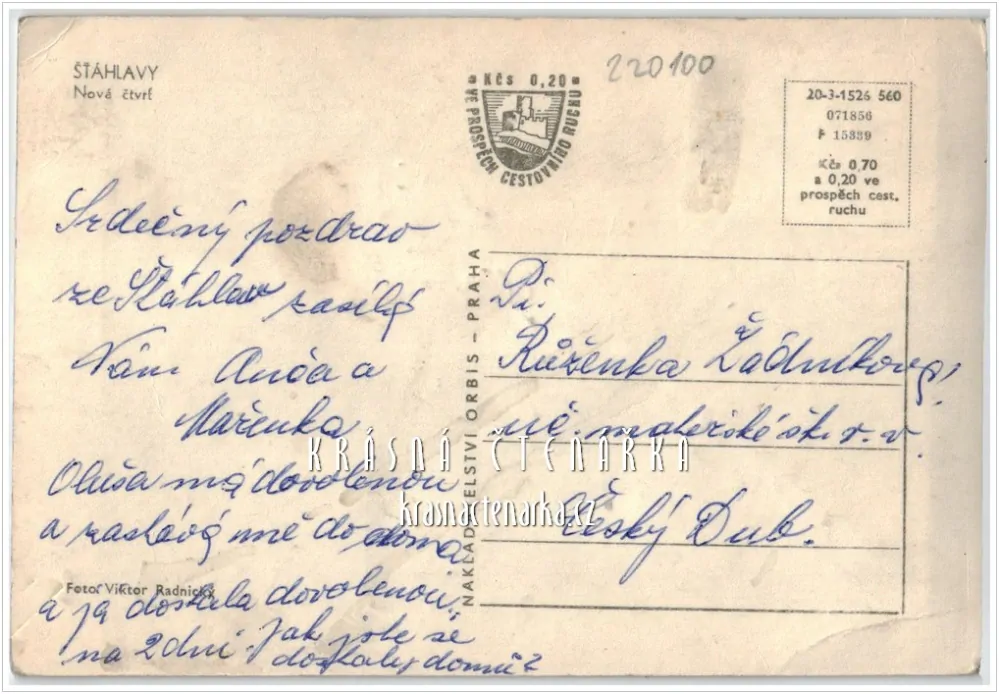 ŠŤÁHLAVY
Nová čtvrť
220100
Kčs 0,20
VE PROSPĚCH CESTOVNÍHO RUCHU
20-3-1526 560
071856
F 15839
Kčs 0,70
a 0,20 ve
prospěch cest.
ruchu
Srdečný pozdrav
ze Štáhlav zasílá
Vám Anča a
Mařenka
Oluša má dovolenou
a zastává mě do doma
a já dostala dovolenou
na 2 dni. Jak jste se
dostaly domů?
Foto: Viktor Radnický
NAKLADATELSTVÍ ORBIS – PRAHA
Pí.
Růženka Žádníková,
uč. mateřské šk. v. v.
Český Dub.
KRÁSNÁ ČTENÁŘKA
krasnactenarka.cz